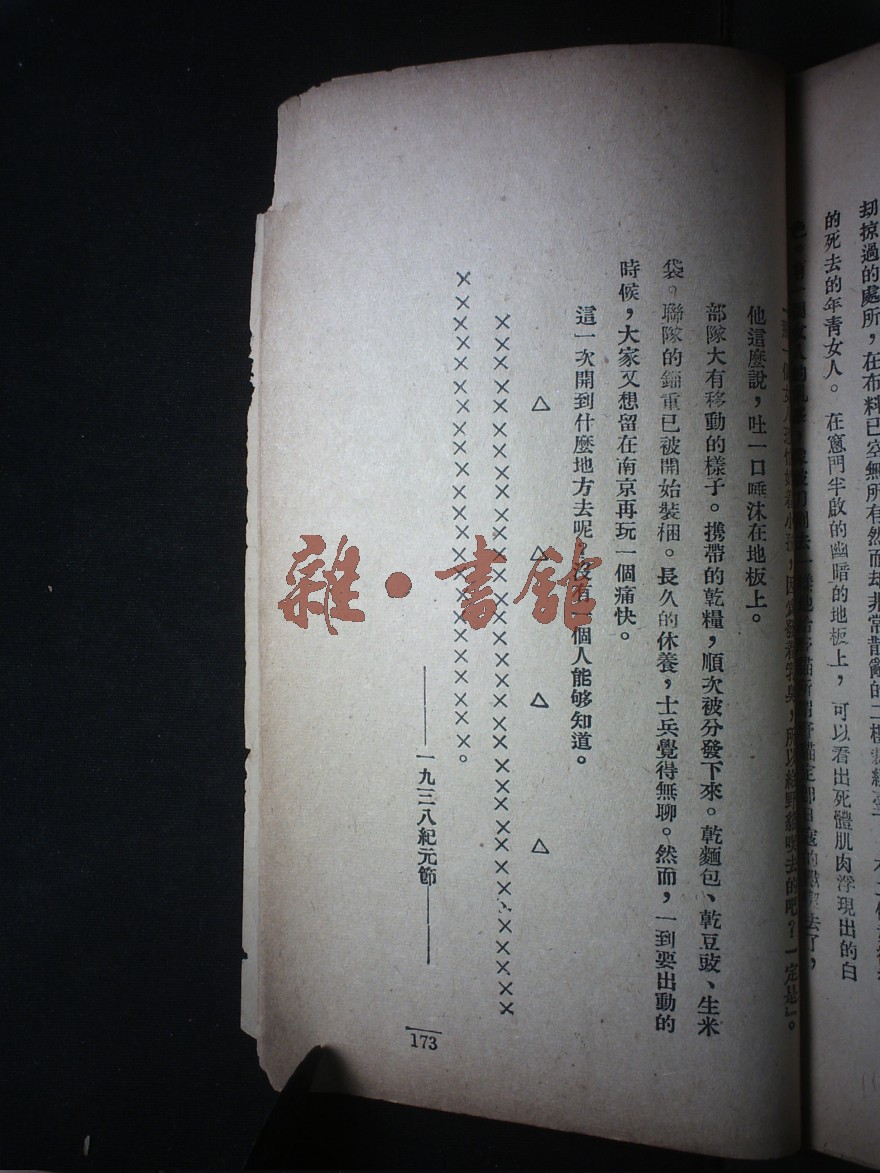 劫掠過的處所，在布料已空無所有然而却非常散亂的二樓
的死去的年青女人。在窗門半啟的幽暗的地板上，可以看出死體肌肉浮現出的白
他這麼說，吐一口唾沫在地板上。
部隊大有移動的樣子。携帶的乾糧，順次被分發下來。乾麵包、乾豆豉、生米
袋。聯隊的輜重已被開始裝梱。長久的休養，士兵覺得無聊。然而，一到要出動的
時候，大家又想留在南京再玩一個痛快。
這一次開到什麼地方去呢，沒有一個人能够知道。
△ △ △ △
×××××××××××××××××××××××××××××××××
×××××××××××××××××××××××。
——一九三八紀元節——
173
雜·書館